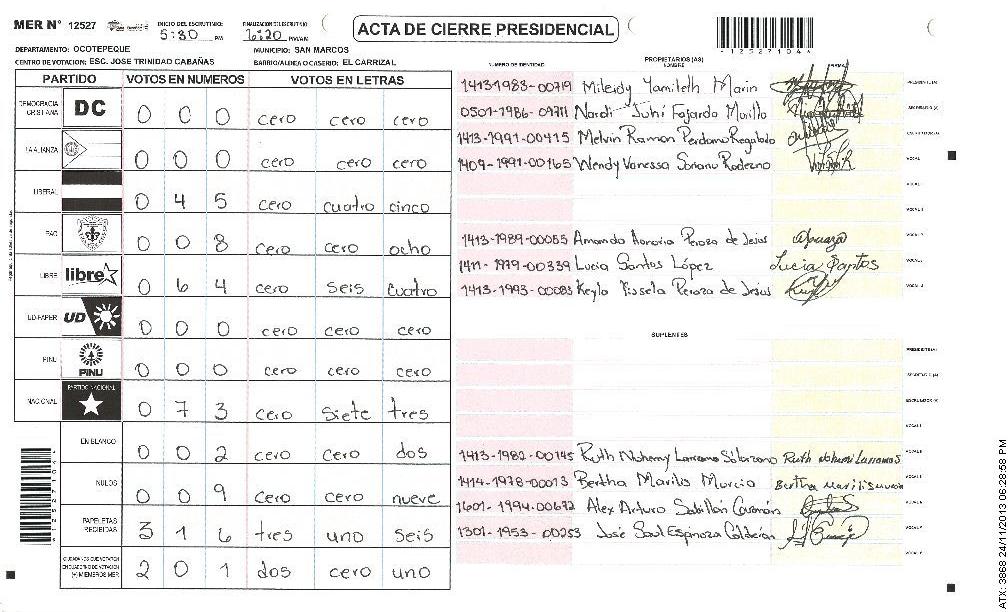 MER N° 12527 INICIO DEL ESCRUTINIO: 5:30 PM FINALIZACION DEL ESCRUTINIO: 6:20 PM/AM ACTA DE CIERRE PRESIDENCIAL
DEPARTAMENTO: OCOTEPEQUE MUNICIPIO: SAN MARCOS
CENTRO DE VOTACION: ESC. JOSE TRINIDAD CABAÑAS BARRIO/ALDEA O CASERIO: EL CARRIZAL
125271044
PARTIDO VOTOS EN NUMEROS VOTOS EN LETRAS
DEMOCRACIA CRISTIANA DC 0 0 0 cero cero cero
LA ALIANZA 0 0 0 cero cero cero
LIBERAL 0 4 5 cero cuatro cinco
PAC 0 0 8 cero cero ocho
LIBRE libre 0 6 4 cero seis cuatro
UD-FAPER UD 0 0 0 cero cero cero
PINU PINU 0 0 0 cero cero cero
NACIONAL PARTIDO NACIONAL 0 7 3 cero siete tres
EN BLANCO 0 0 2 cero cero dos
NULOS 0 0 9 cero cero nueve
PAPELETAS RECIBIDAS 3 1 6 tres uno seis
CIUDADANOS QUE VOTARON EN CUADERNO DE VOTACION (+) MIEMBROS MER 2 0 1 dos cero uno
PROPIETARIOS (AS)
NUMERO DE IDENTIDAD NOMBRE FIRMA
1413-1983-00719 Mileidy Yamileth Marin PRESIDENTE (A)
0501-1986-09711 Nardi Juhi Fajardo Murillo SECRETARIO (A)
1413-1991-00415 Melvin Ramon Perdomo Regalado ESCRUTADOR (A)
1409-1991-00165 Wendy Vanessa Soriano Rodezno VOCAL
VOCAL
1413-1989-00055 Amanda Honoria Peraza de Jesus VOCAL
1411-1979-00339 Lucia Santos López Lucia Santos VOCAL
1413-1993-00083 Keyla Yissela Peraza de Jesus VOCAL
SUPLENTES
PRESIDENTE (A)
SECRETARIO (A)
ESCRUTADOR (A)
VOCAL
1413-1982-00145 Ruth Nohemy Larramo Solorzano VOCAL
1414-1978-00013 Bertha Marilis Murcia VOCAL
1601-1994-00672 Alex Arturo Sabillón VOCAL
1301-1953-00253 José Saul Espinoza Calderón VOCAL
VOCAL
ATX: 3868 24/11/2013 06:28:58 PM